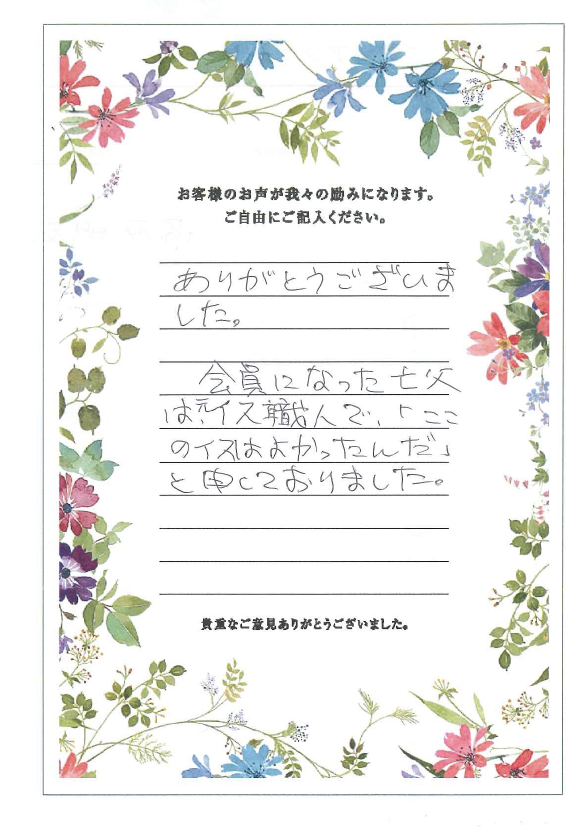 お客様のお声が我々の励みになります。
ご自由にご記入ください。
ありがとうございま
した。
会員になった亡父
は、元イス職人で、「ここ
のイスはよかったんだ」
と申しておりました。
貴重なご意見ありがとうございました。